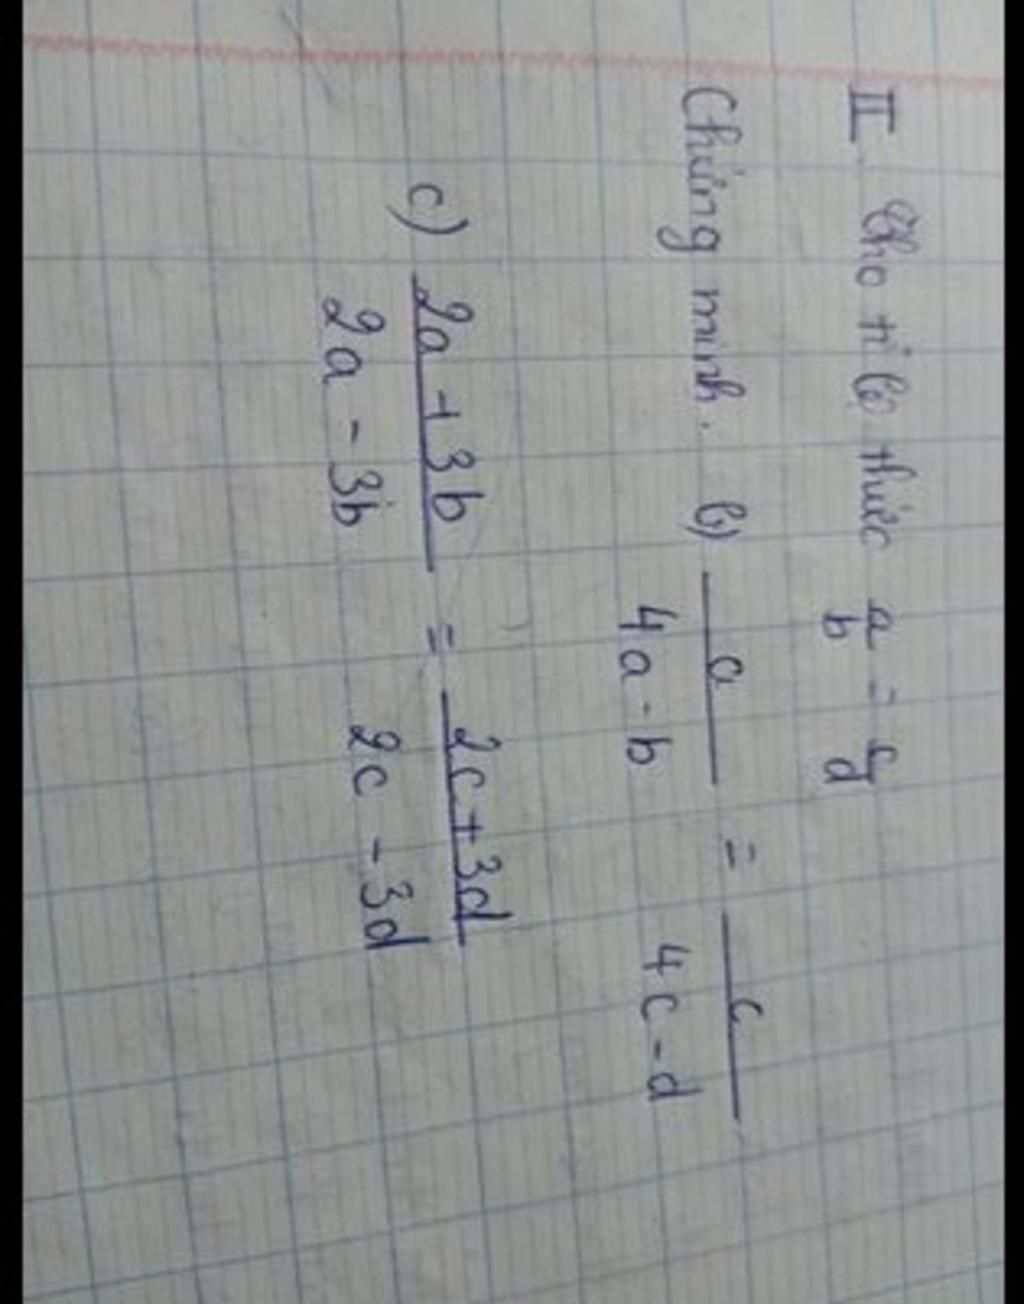 II. Cho tỉ lệ thức a/b = c/d
Chứng minh. b) a/(4a - b) = c/(4c - d)
c) (2a + 3b)/(2a - 3b) = (2c + 3d)/(2c - 3d)